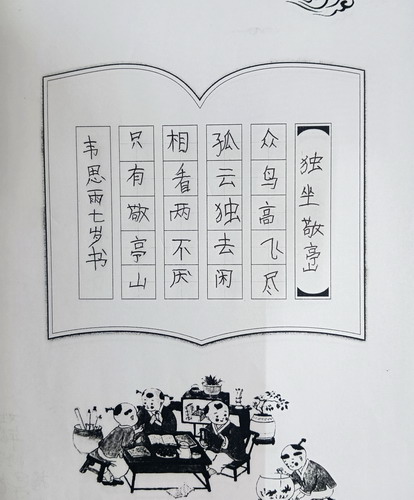 独坐敬亭山
众鸟高飞尽
孤云独去闲
相看两不厌
只有敬亭山
韦思雨七岁书